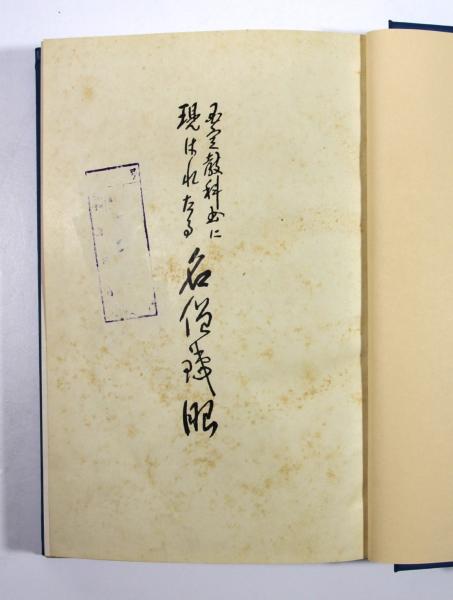 国定教科書に
現はれたる
名僧鉄眼